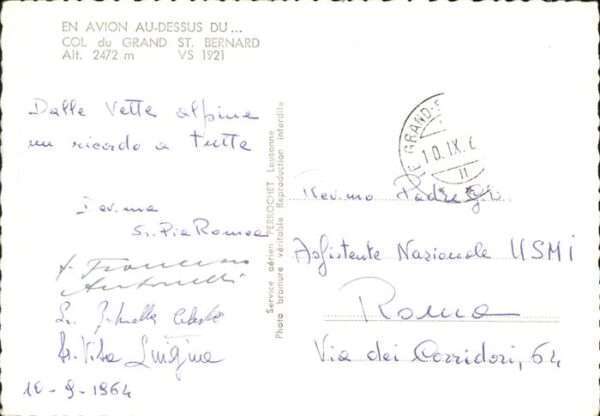 EN AVION AU-DESSUS DU...
COL du GRAND ST. BERNARD
Alt. 2472 m VS 1921
Dalle Vette alpine
un ricordo a tutte
Dev.ma
Sr. Pia Romea
Antonelli
Luigina
10-9-1964
Service aérien PERROCHET Lausanne
Photo bromure véritable Reproduction interdite
GRAND-
10.IX.6
Rev.mo Padre
Assistente Nazionale USMI
Roma
Via dei Corridori, 64